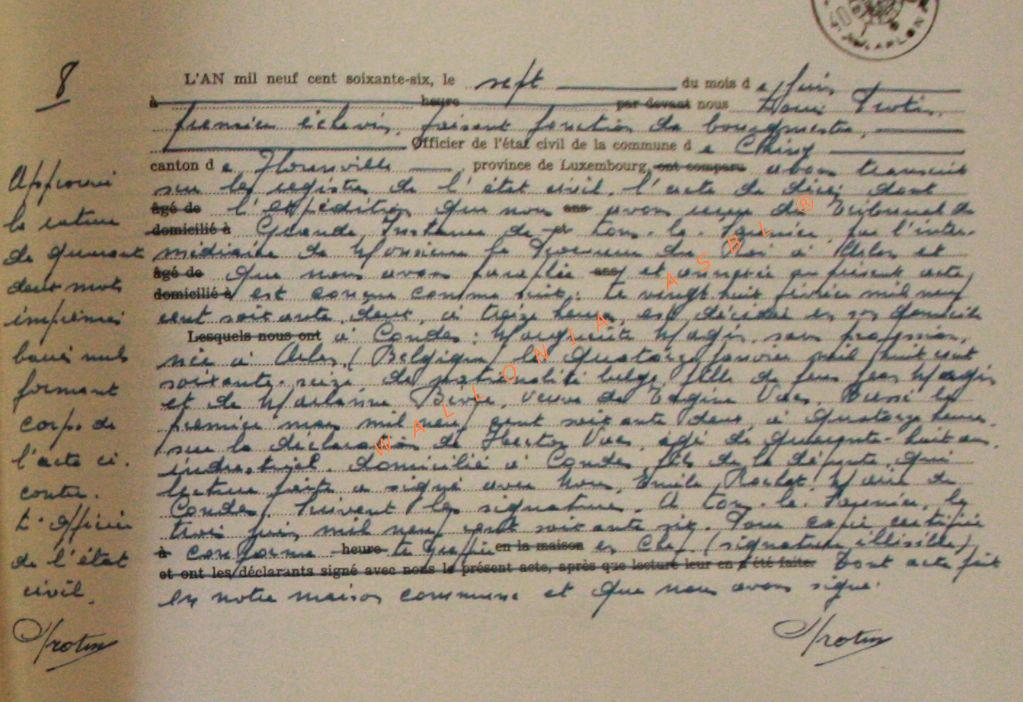 8
ARLON
L'AN mil neuf cent soixante-six, le sept du mois de juin
à heure par devant nous Trotin,
premier échevin, faisant fonction de bourgmestre,
Officier de l'état civil de la commune de Chiny
canton de Florenville province de Luxembourg, ont comparu avons transcrit
sur les registres de l'état civil, l'acte de décès dont
âgé de l'expédition que nous ans avons reçue du Tribunal de
domicilié à Grande Instance de Lons-le-Saunier, par l'inter-
médiaire de Monsieur le Procureur du Roi à Arlon et
âgé de que nous avons paraphée ans et annexée au présent acte,
domicilié à est conçue comme suit: Le vingt huit février mil neuf
cent soixante deux, à treize heures, est décédée en son domicile
Lesquels nous ont à Condes: Marguerite Magis, sans profession,
née à (Belgique) le quatorze janvier mil huit cent
soixante-seize, de nationalité belge, fille de feus Jean Magis
et de Marianne veuve de Vas. Dressé le
premier mars mil neuf cent soixante deux à quatorze heures
sur la déclaration de Hector Vas, âgé de quarante-huit ans,
industriel, domicilié à Condes, fils de la défunte, qui
lecture faite a signé avec Nous, Emile Rochet, Maire de
Condes. Suivent les signatures. A Lons-le-Saunier, le
trois juin mil neuf cent soixante six. Pour copie certifiée
à conforme heure le Greffier en la maison en Chef (signature illisible)
et ont les déclarants signé avec nous le présent acte, après que lecture leur en a été faite. Dont acte fait
en notre maison commune et que nous avons signé.
Trotin
Approuvé
la rature
de quarante
deux mots
imprimés
bâtonnés
formant
corps de
l'acte ci-
contre.
L'Officier
de l'état
civil.
Trotin
WALLONIA ASBL ®